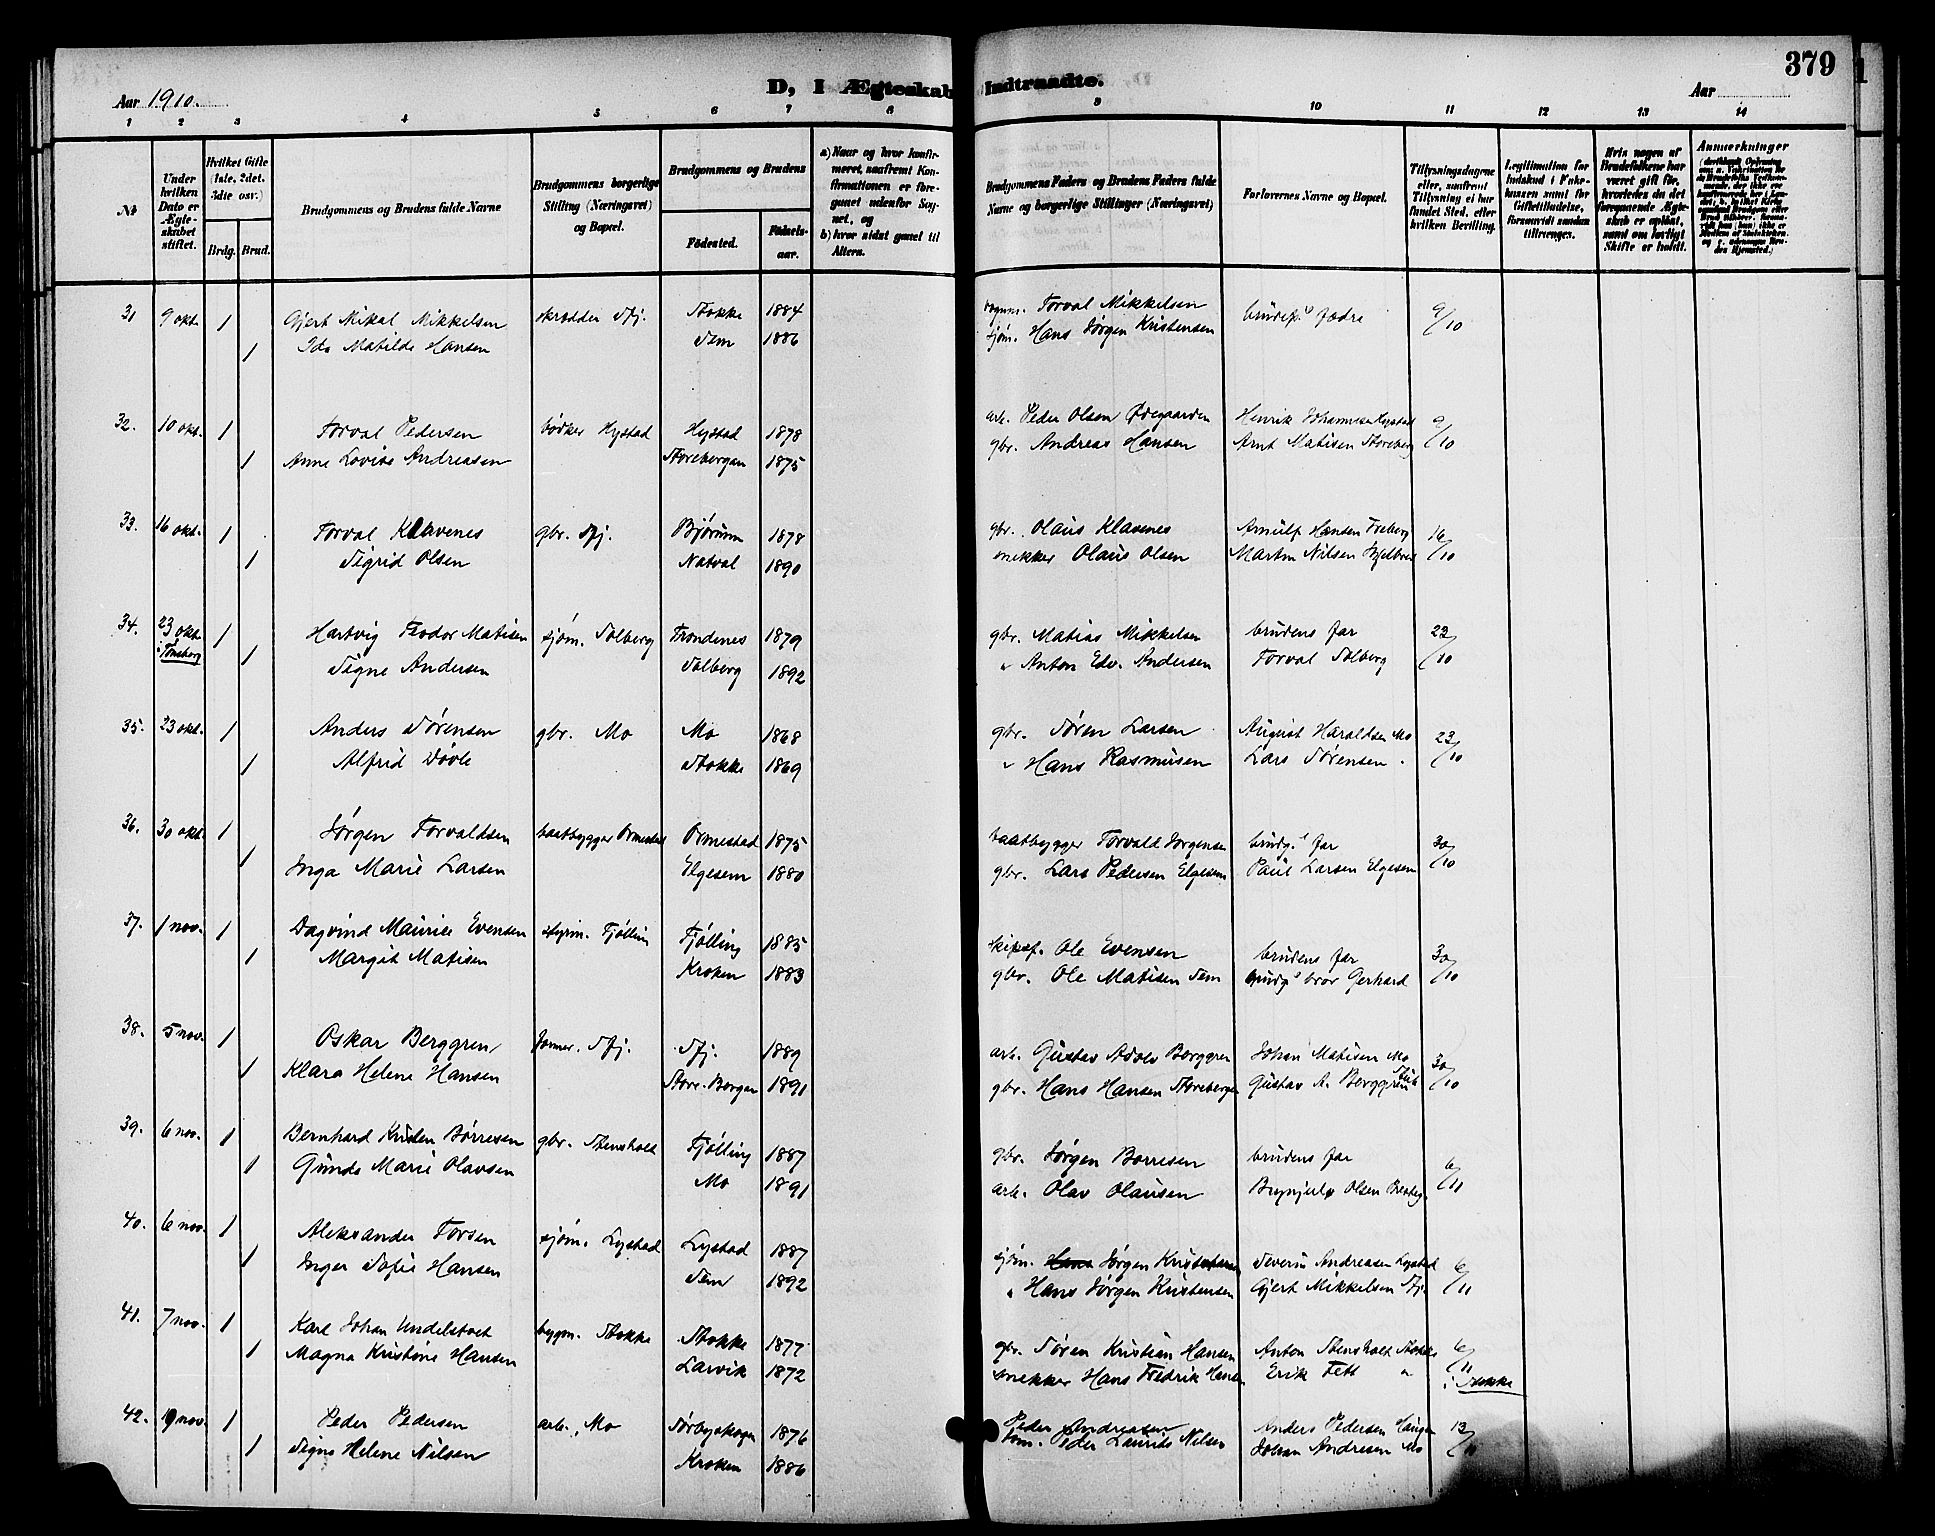 379
Aar 1910.
D, I Ægteskab Indtraadte.
Aar
1 2 3 4 5 6 7 8 9 10 11 12 13 14
Nt
Under hvilken Dato er Ægteskabet stiftet.
Hvilket Gifte (1ste, 2det, 3die osv.)
Brdg. Brud.
Brudgommens og Brudens fulde Navne
Brudgommens borgerlige Stilling (Næringsvei) og Bopæl.
Brudgommens og Brudens
Fødested.
Fødselsaar.
a) Naar og hvor konfirmeret, naafremt Konfirmationen er foregaaet udenfor Sognet, og
b) hvor sidst gaaet til Alters.
Brudgommens Faders og Brudens Faders fulde Navne og borgerlige Stillinger (Næringsvei)
Forlovernes Navne og Bopæl.
Tillysningsdagene eller, naafremt Tillysning ei har fundet Sted, efter hvilken Bevilling.
Legitimation for Indskud i Enkekassen samt for Giftetilladelse, forsaavidt saadan tiltrænges.
Hvis nogen af Brudefolkene har været gift før, hvorledes da det foregaaende Ægteskab er opløst, samt om lovligt Skifte er holdt.
Anmærkninger
31 9 okt. 1 Gjert Mikal Mikkelsen skrædder Sfj. Stokke 1884 Torval Mikkelsen brudef.s fædre 9/10
1 Ida Matilde Hansen Sem 1886 sjøm. Hans Jørgen Kristensen
32. 10 okt. 1 Torval Pedersen bødker Hystad Hystad 1878 arb. Peder Olsen Ødegaarden Henrik Johannesen Hystad 9/10
1 Anne Lovise Andreasen Storebergan 1875 gbr. Andreas Hansen Arnt Matisen Storeberg
33. 16 okt. 1 Torval Klavenes gbr. Sfj. Bjørum 1878 gbr. Olaus Klavenes Arnulf Hansen Freberg 16/10
1 Sigrid Olsen Natval 1890 snekker Olaus Olsen Martin Nilsen
34. 23 okt. i Tønsberg 1 Hartvig Teodor Matisen sjøm. Solberg Trondenes 1879 gbr. Matias Mikkelsen brudens far 23/10
1 Signe Andersen Solberg 1892 " Anton Edv. Andersen Torval Solberg
35. 23 okt. 1 Anders Sørensen gbr. Mo Mo 1868 gbr. Søren Larsen August Haraldsen Mo 23/10
1 Alfrid Døvle Stokke 1869 " Hans Rasmusen Lars Sørensen "
36. 30 okt. 1 Jørgen Torvaldsen baatbygger Ormestad Ormestad 1875 baatbygger Torvald Jørgensen brudg.s far 30/10
1 Inga Marie Larsen Elgesem 1880 gbr. Lars Pedersen Elgesem Paul Larsen Elgesem
37. 1 nov. 1 Dagvind Maurice Evensen styrm. Tjølling Tjølling 1885 skipsf. Ole Evensen brudens far 30/10
1 Margit Matisen Kroken 1883 gbr. Ole Matisen Sem brudg.s bror Gerhard
38. 5 nov. 1 Oskar Berggren former. Sfj. Sfj. 1889 arb. Gustav Adolv Berggren Johan Matisen Mo 30/10
1 Klara Helene Hansen Store-Bergan 1891 gbr. Hans Hansen Storebergan Gustav A. Berggren
39. 6 nov. 1 Bernhard Kristen Børresen gbr. Stensholt Tjølling 1887 gbr. Jørgen Borresen brudens far 6/11
1 Gunda Marie Olavsen Mo 1891 arb. Olav Olausen Brynjulv Olsen
40. 6 nov. 1 Aleksander Torsen sjøm. Lystad Lystad 1887 sjøm. Hans Jørgen Kristensen Severin Andreasen Lystad 6/11
1 Inger Sofie Hansen Sem 1892 " Hans Jørgen Kristensen Gjert Mikkelsen Sfj.
41. 7 nov. 1 Karl Johan Undelstvet bygm. Stokke Stokke 1877 gbr. Søren Kristian Hansen Anton Stensholt Stokke 6/11
1 Magna Kristine Hansen Larvik 1872 snekker Hans Fredrik Hansen Erik Fett " i Stokke
42. 9 nov. 1 Peder Pedersen arb. Mo Sørbyskogen 1876 Peder Andreasen Anders Pedersen Haugen 13/11
1 Signe Helene Nilsen Kroken 1886 tøm. Peder Laurits Nilsen Johan Andresen Mo